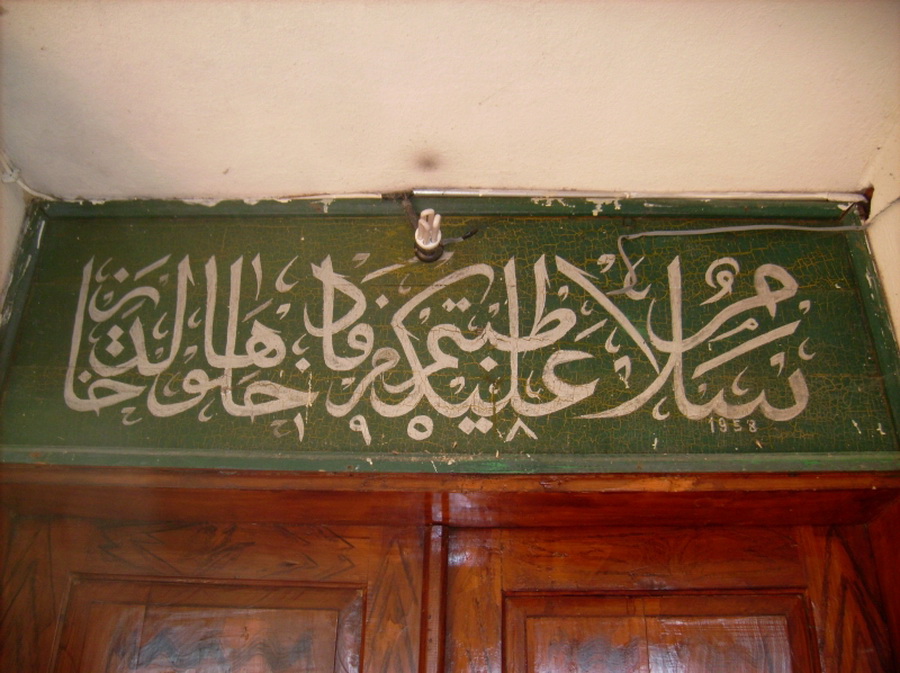 سلام عليكم طبتم فادخلوها خالدين
١٩٥٨
1958